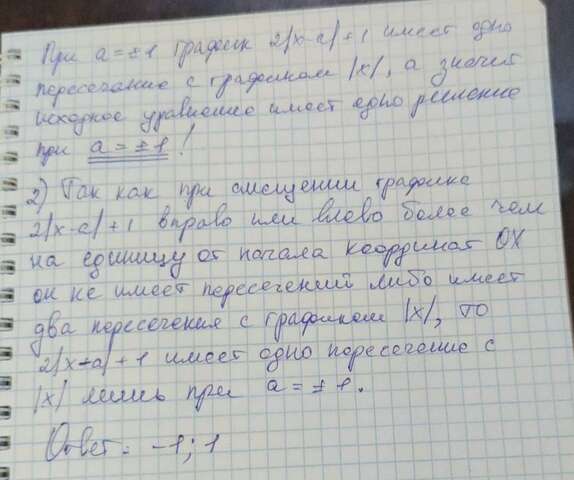 При a = ±1 график 2|x-a|+1 имеет одно
пересечение с графиком |x|, а значит
исходное уравнение имеет одно решение
при a = ±1!
2) Так как при смещении графика
2|x-a|+1 вправо или влево более чем
на единицу от начала координат OX
он не имеет пересечений либо имеет
два пересечения с графиком |x|, то
2|x-a|+1 имеет одно пересечение с
|x| лишь при a = ±1.
Ответ: -1; 1